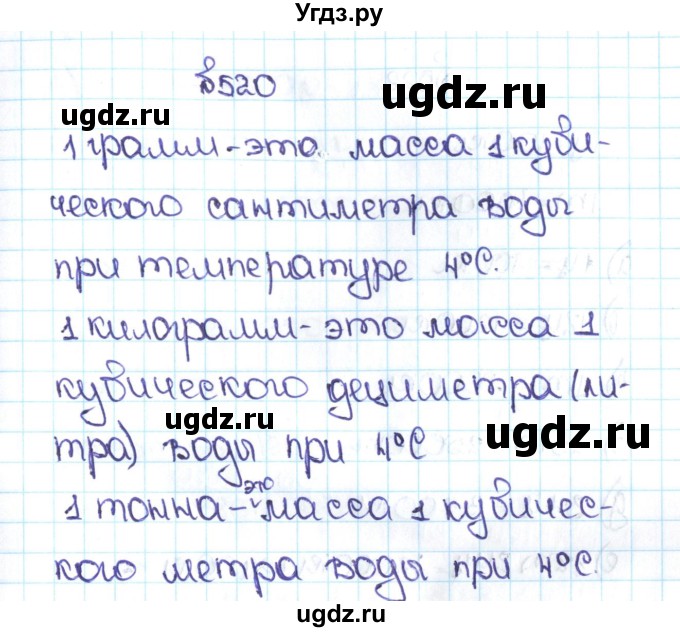 Угдз.ру
№520
ugdz.ru
ugdz.ru
1 грамм-это масса 1 куби-
ческого сантиметра воды
при температуре 4°С.
1 килограмм-это масса 1
кубического дециметра (ли-
ugdz.ru
ugdz.ru
тра) воды при 4°С
это
1 тонна- масса 1 кубичес-
кого метра воды при 4°С.
ugdz.ru